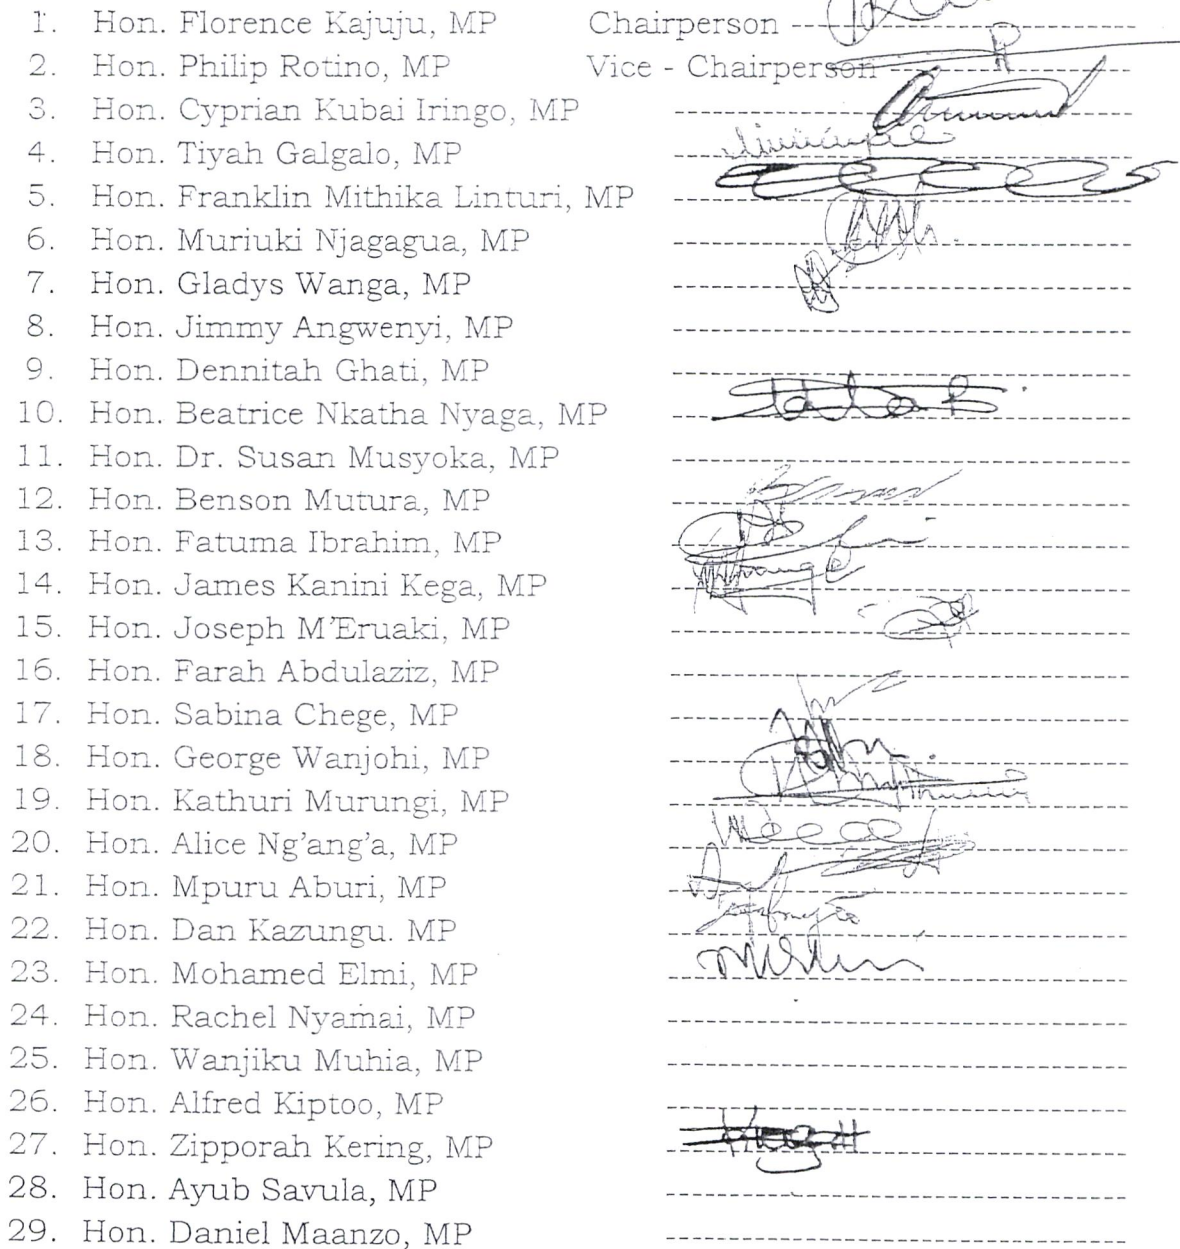 1. Hon. Florence Kajuju, MP Chairperson
2. Hon. Philip Rotino, MP Vice - Chairperson
3. Hon. Cyprian Kubai Iringo, MP
4. Hon. Tiyah Galgalo, MP
5. Hon. Franklin Mithika Linturi, MP
6. Hon. Muriuki Njagagua, MP
7. Hon. Gladys Wanga, MP
8. Hon. Jimmy Angwenyi, MP
9. Hon. Dennitah Ghati, MP
10. Hon. Beatrice Nkatha Nyaga, MP
11. Hon. Dr. Susan Musyoka, MP
12. Hon. Benson Mutura, MP
13. Hon. Fatuma Ibrahim, MP
14. Hon. James Kanini Kega, MP
15. Hon. Joseph M'Eruaki, MP
16. Hon. Farah Abdulaziz, MP
17. Hon. Sabina Chege, MP
18. Hon. George Wanjohi, MP
19. Hon. Kathuri Murungi, MP
20. Hon. Alice Ng'ang'a, MP
21. Hon. Mpuru Aburi, MP
22. Hon. Dan Kazungu. MP
23. Hon. Mohamed Elmi, MP
24. Hon. Rachel Nyamai, MP
25. Hon. Wanjiku Muhia, MP
26. Hon. Alfred Kiptoo, MP
27. Hon. Zipporah Kering, MP
28. Hon. Ayub Savula, MP
29. Hon. Daniel Maanzo, MP